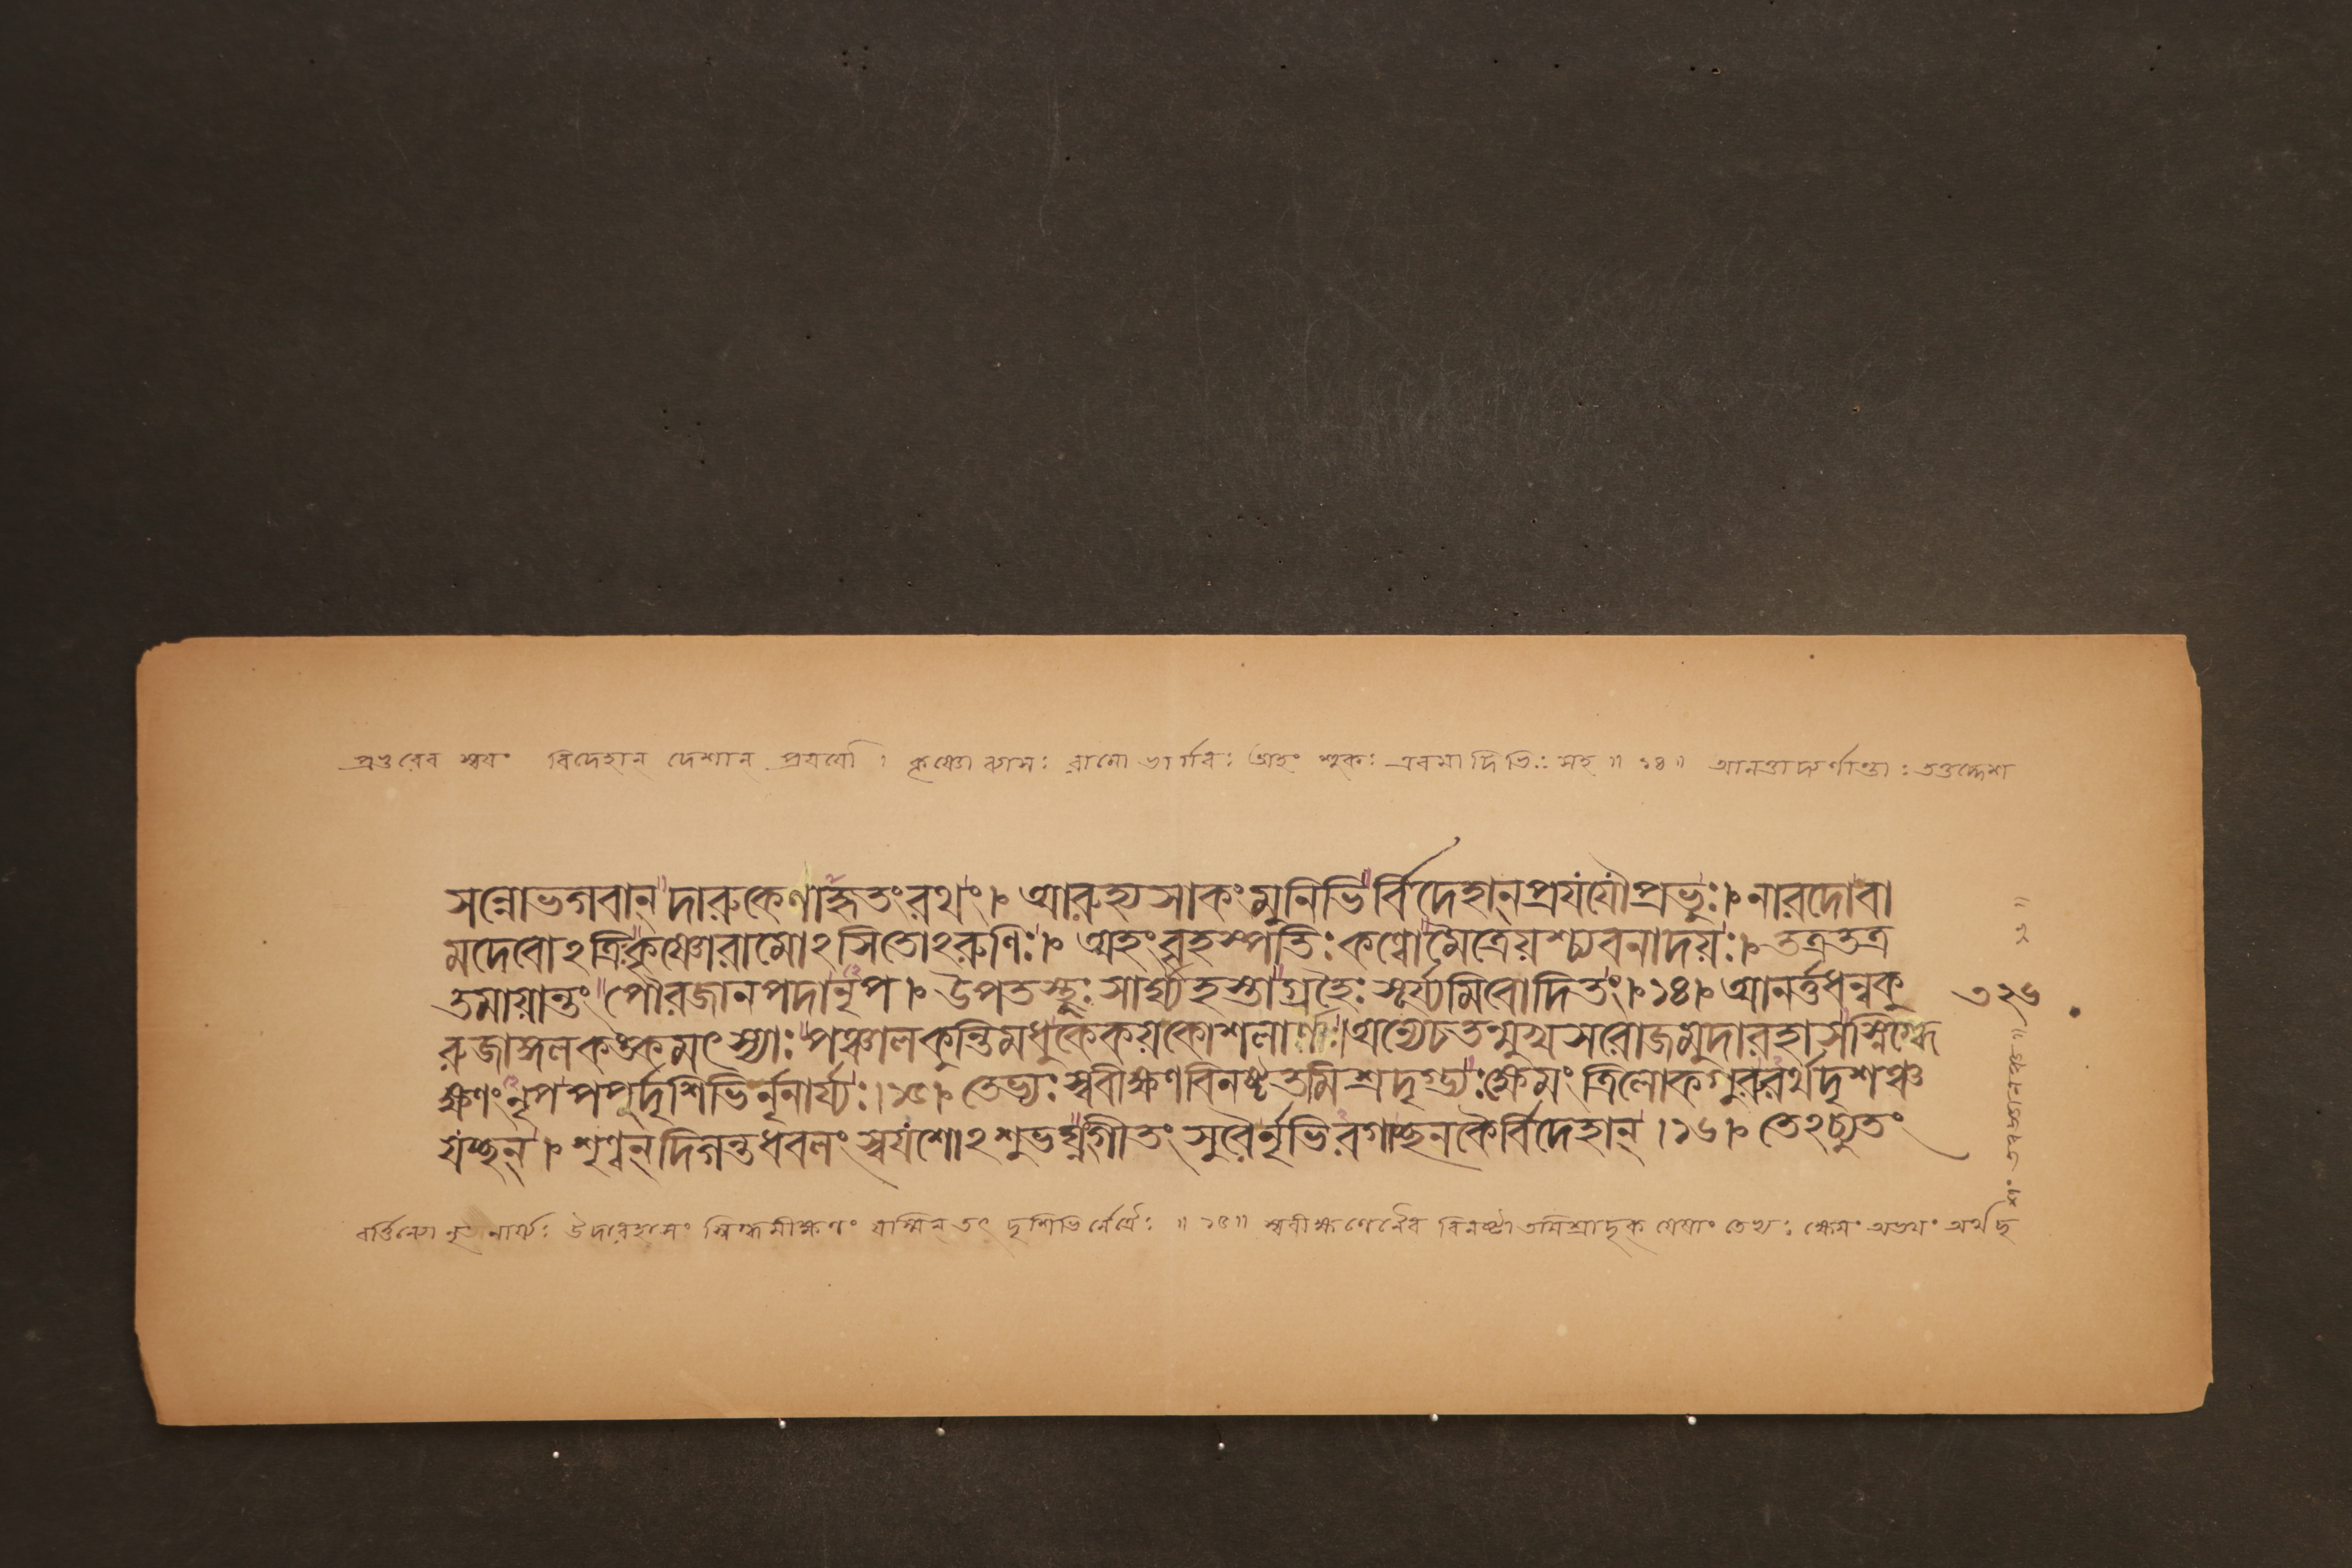 প্রভুরেব স্বয়ং বিদেহান দেশান প্রযযৌ । কৃষ্ণো ব্যাসঃ রামো ভার্গবঃ অহং শুকঃ এবমাদিভিঃ সহ ॥ ১৪ ॥
সন্নোভগবান্ দারুকেণাহৃতংরথং । আরুহ্য সাকংমুনিভির্বিদেহান্প্রযযৌপ্রভুঃ । নারদোবা
মদেবোঽত্রিঃকৃষ্ণোরামোঽসিতোঽরুণিঃ । অহংবৃহস্পতিঃকণ্বোমৈত্রেয়শ্চ্যবনাদয়ঃ । তত্রতত্র
তমায়ান্তংপৌরজানপদানৃপ । উপতস্থুঃ সার্ঘ্যহস্তাগ্রহৈঃ সূর্য্যমিবোদিতং । ১৪ । আনর্ত্তধন্বকু
৩২৬
রুজাঙ্গলকঙ্কমৎস্যাঃপঞ্চালকুন্তিমধুকেকয়কোশলার্ণাঃ । অন্যেচতন্মুখসরোজমুদারহাসস্নিগ্ধে
ক্ষণংনৃপপপুর্দৃশিভির্নৃনার্য্যঃ । ১৫ । তেভ্যঃস্ববীক্ষণবিনষ্টতমিশ্রদৃগ্ভ্যঃক্ষেমং ত্রিলোকগুরুরর্থদৃশঞ্চ
যচ্ছন্ । শৃণ্বন্ দিগন্তধবলং স্বযশোঽশুভঘ্নংগীতং সুরৈর্নৃভিরগাচ্ছনকৈর্বিদেহান্ । ১৬ । তেঽচ্যুতং
নৃনার্য্যঃ উদারহাসং স্নিগ্ধমীক্ষণং যস্মিন্ তৎ দৃশিভির্নেত্রৈঃ ॥ ১৫ ॥ স্ববীক্ষণেনৈব বিনষ্টা তমিশ্রাদৃক্ যেষাং তেভ্যঃ ক্ষেমং অভয়ং